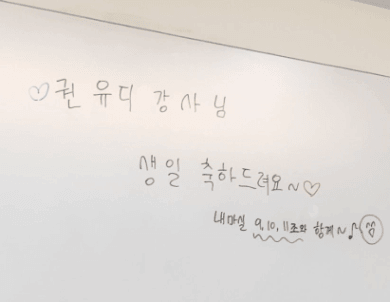 ♡권 유디 강사님
생일 축하드려요~♡
내마실 9,10,11조와 함께~♪